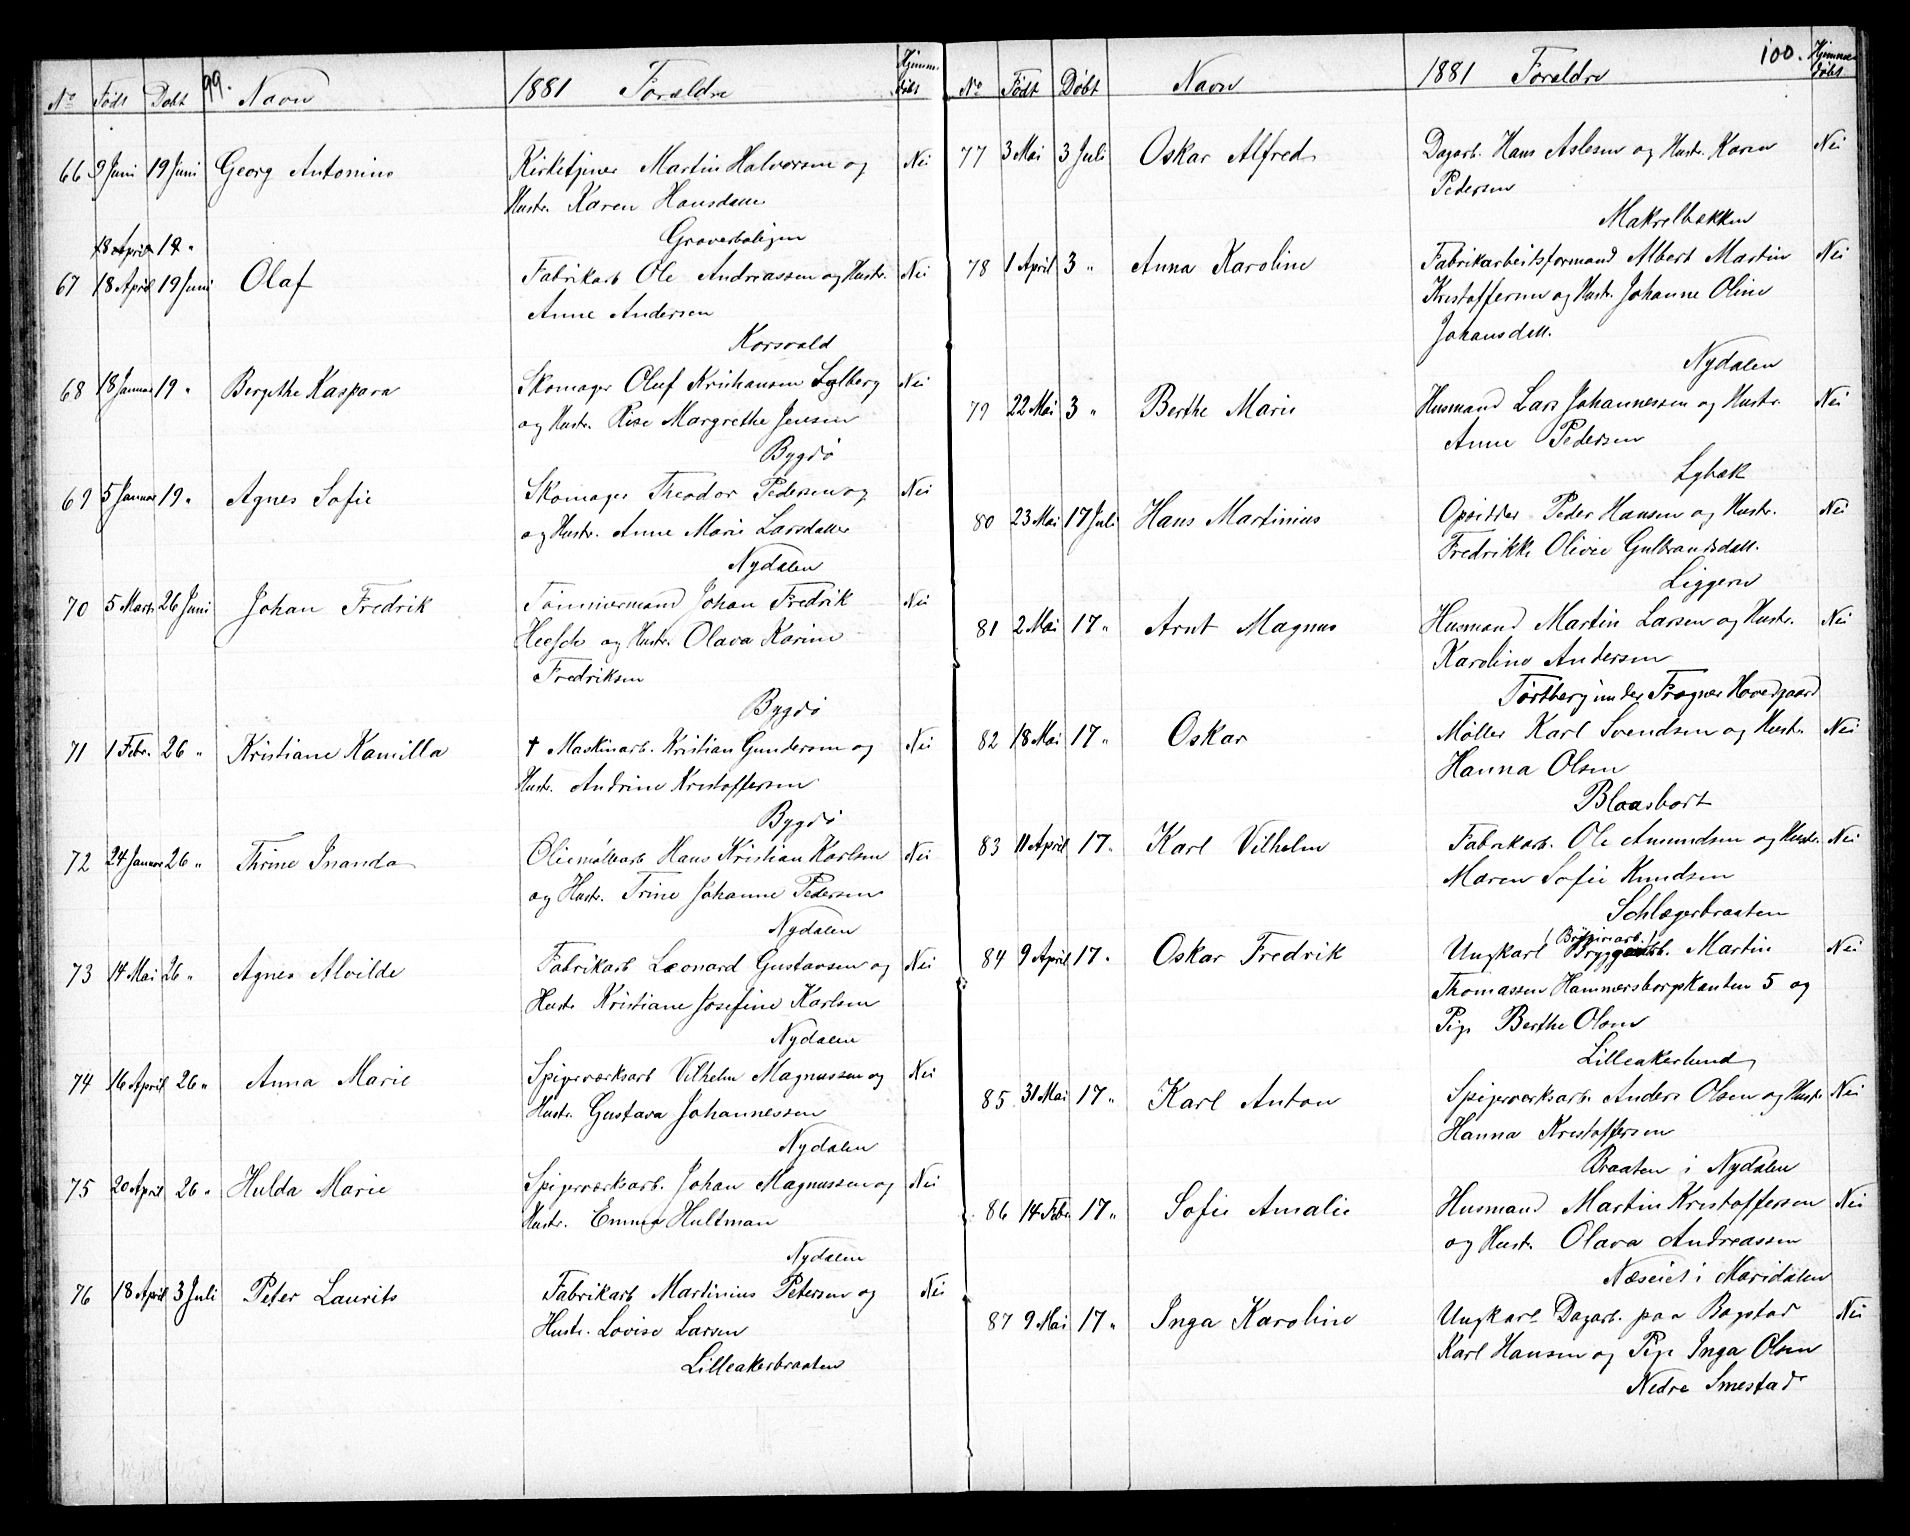 99.
No Født Døbt Navn 1881 Forældre Hjemmedøbt
66 9 Juni 19 Juni Georg Antonius Kirketjener Martin Halvorsen og Nei
Hustr. Karen Hansdatter
Graverboligen
18 April 19 "
67 18 April 19 Juni Olaf Fabrikarb Ole Andreassen og Hustr. Nei
Anne Andersen
Korsvold
68 18 Januar 19 " Bergithe Kaspara Skomager Oluf Kristiansen Nei
og Hustr. Margrethe Jensen
Bygdø
69 5 Januar 19 " Agnes Sofie Skomager Theodor Pedersen og Nei
og Hustr. Anne Marie Larsdatter
Nydalen
70 5 Marts 26 Juni Johan Fredrik Tømmermand Johan Fredrik Nei
Heesch og Hustr. Olava Karine
Fredriksen
Bygdø
71 1 Febr. 26 " Kristiane Kamilla † Maskinarb. Kristian Gundersen og Nei
Hustr. Andrine Kristoffersen
Bygdø
72 24 Januar 26 " Thrine Inanda Oliemølearb Hans Kristian Karlsen Nei
og Hustr. Trine Johanne Pedersen
Nydalen
73 14 Mai 26 " Agnes Alvilde Fabrikarb Leonard Gustavsen og Nei
Hustr Kristiane Josefine Karlsen
Nydalen
74 16 April 26 " Anna Marie Spigerværksarb Vilhelm Magnussen og Nei
Hustr. Gustava Johannessen
Nydalen
75 20 April 26 " Hulda Marie Spigerværksarb. Johan Magnussen og Nei
Hustr. Emma Hultman
Nydalen
76 18 April 3 Juli Peter Laurits Fabrikarb Martinius Petersen og Nei
Hustr. Lovise Larsen
Lilleakerbraaten
100.
No Født Døbt Navn 1881 Forældre Hjemmedøbt
77 3 Mai 3 Juli Oskar Alfred Dagarb. Hans Aslesen og Hustr. Karen Nei
Pedersen
Makrelbækken
78 1 April 3 " Anna Karoline Fabrikarbeitsformand Albert Martin Nei
Kristoffersen og Hustr. Johanne Oline
Johansdatt.
Nydalen
79 22 Mai 3 " Berthe Marie Husmand Lars Johannessen og Hustr. Nei
Anne Pedersen
Lybæk
80 23 Mai 17 Juli Hans Martinius Opsidder Peder Hansen og Hustr. Nei
Fredrikke Olivie Gulbrandsdatt.
Liggeren
81 2 Mai 17 " Arnt Magnus Husmand Martin Larsen og Hustr. Nei
Karoline Andersen
Tørtberg under Frogner Hovedgaard
82 18 Mai 17 " Oskar Møller Karl Svendsen og Hustr. Nei
Hanna Olsen
Blaasbort
83 11 April 17 " Karl Vilhelm Fabrikarb. Ole Amundsen og Hustr. Nei
Maren Sofie Knudsen
Schlægerbraaten
84 9 April 17 " Oskar Fredrik Ungkarl Martin Nei
Thomassen Hammersborgkanten 5 og
Pige Berthe Olsen
Lilleakerlund
85 31 Mai 17 " Karl Anton Spigerværksarb. Anders Olsen og Hustr. Nei
Hanna Kristoffersen
Braaten i Nydalen
86 14 Febr 17 " Sofie Amalie Husmand Martin Kristoffersen Nei
og Hustr. Olava Andreassen
Næseiet i Maridalen
87 9 Mai 17 " Inga Karoline Ungkarl Dagarb. paa Bogstad Nei
Karl Hansen og Pige Inga Olsen
Nedre Smestad